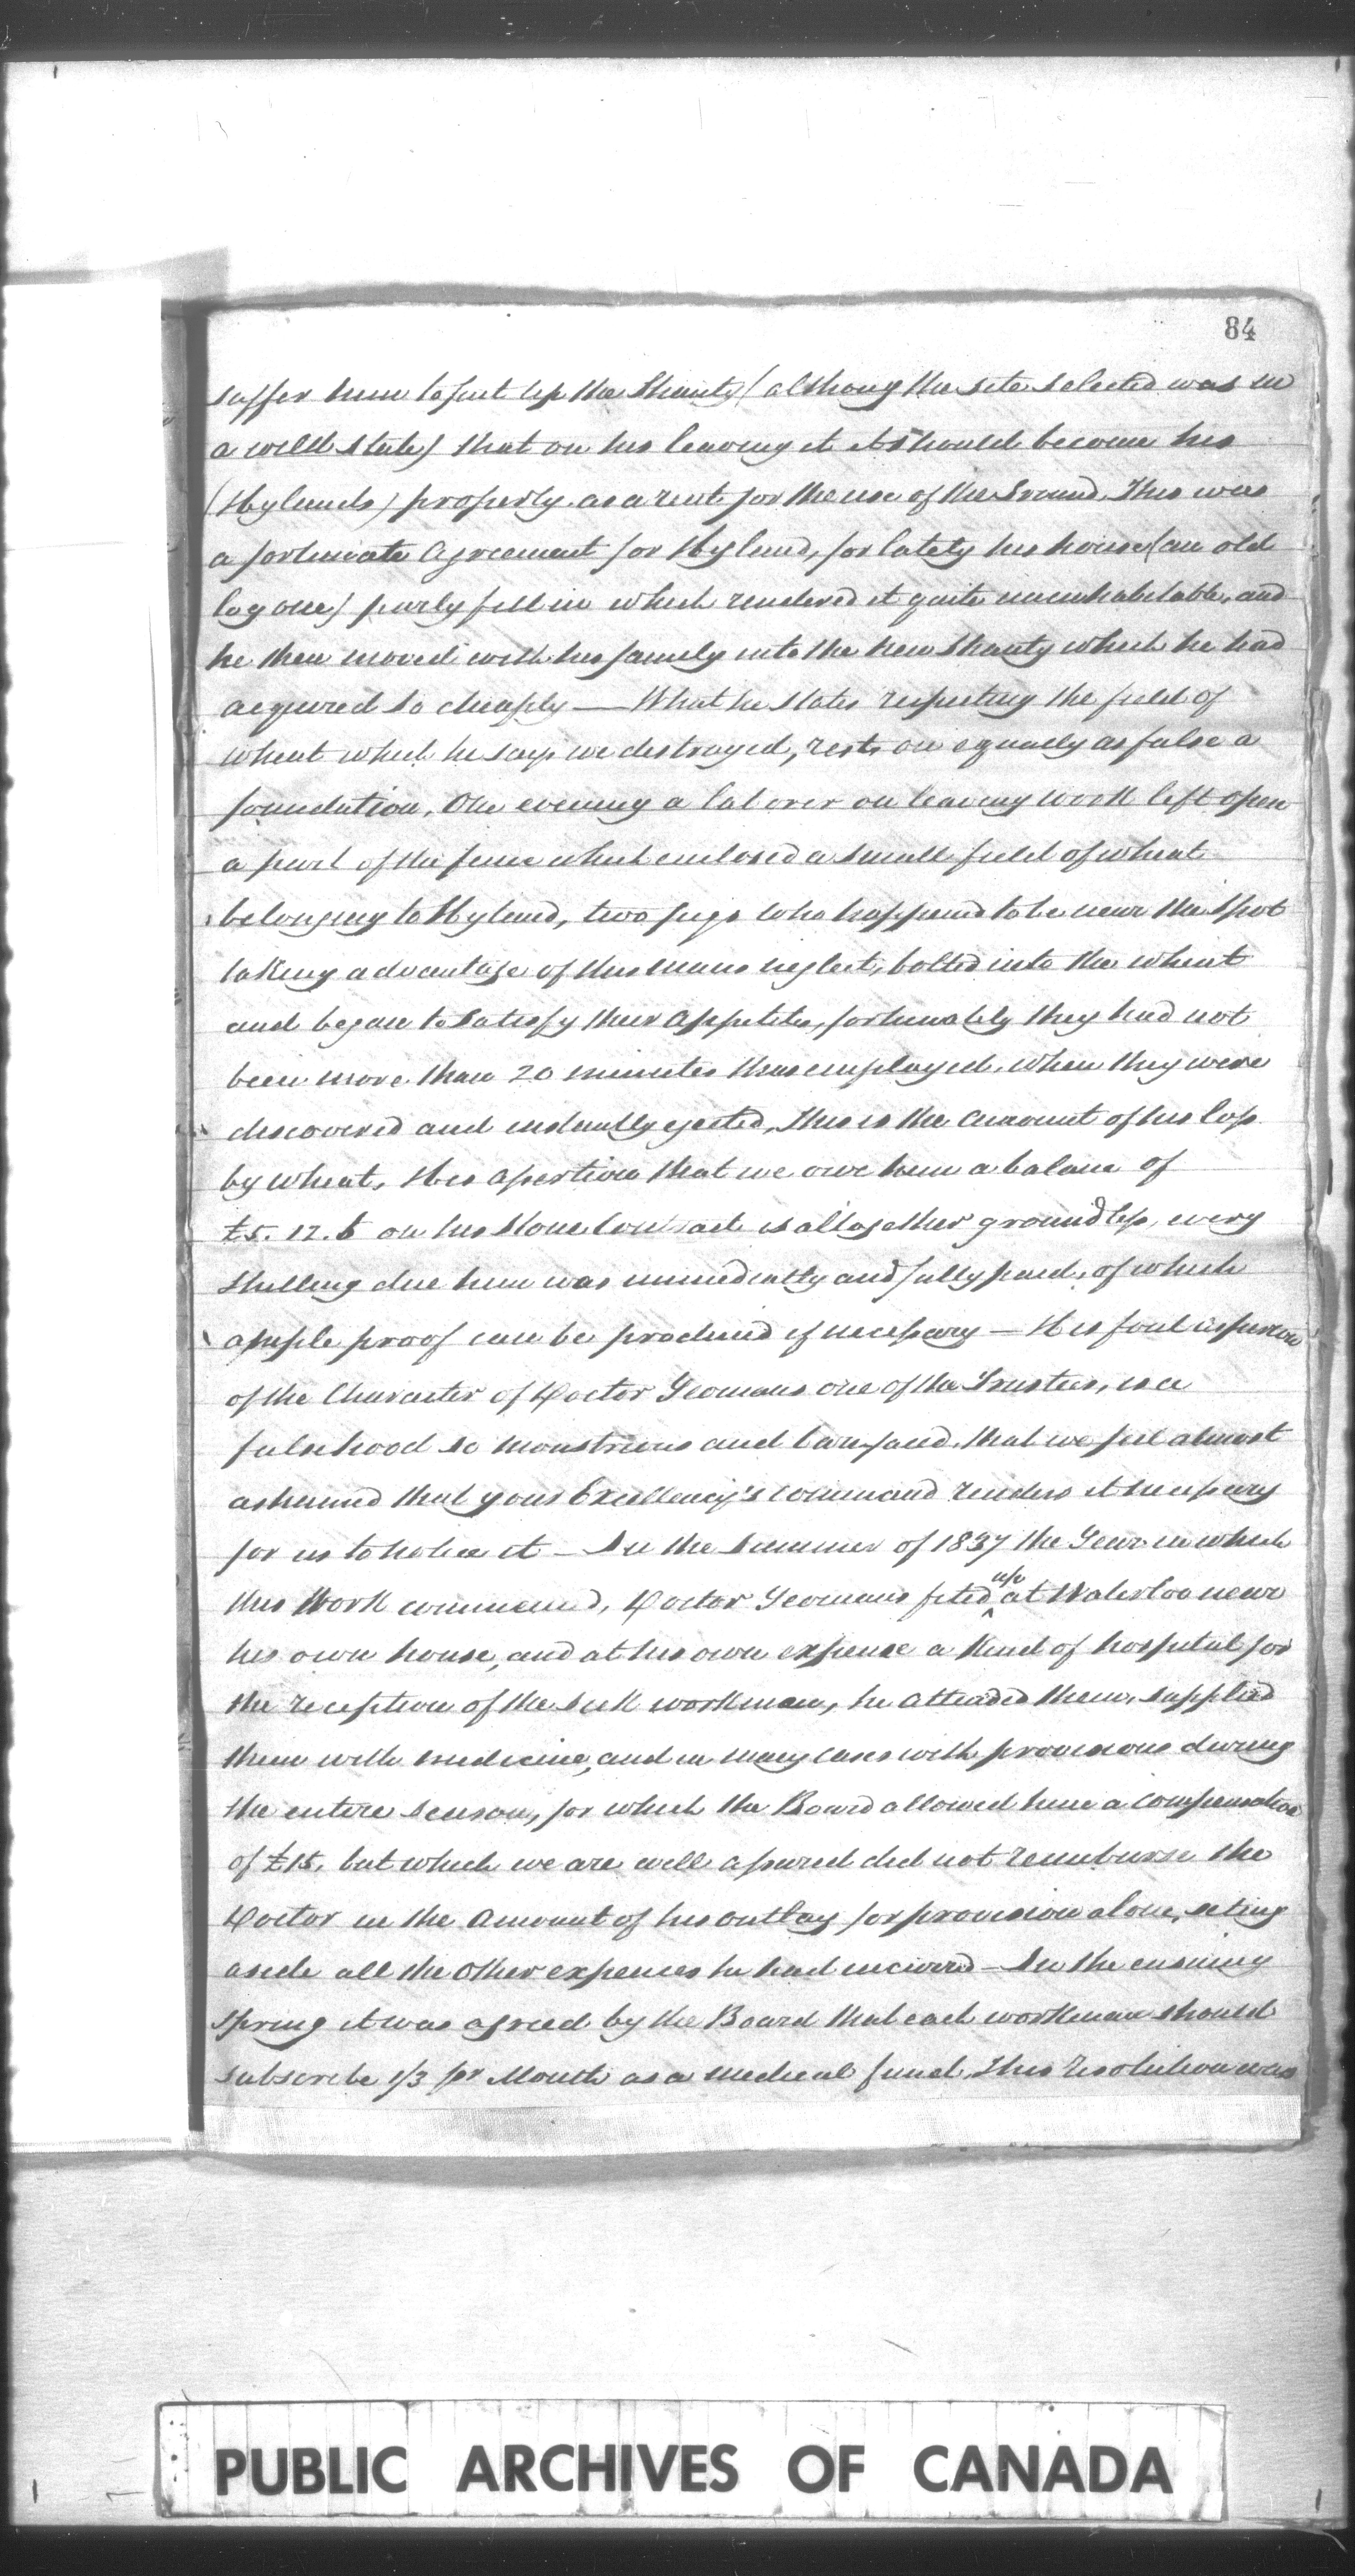 84
suffer him to put up the Shanty (althoug the site selected was in
a wild state) that on his leaving it it should become his
(Hylands) property as a rent for the use of the Ground. This was
a fortunate Agreement for Hyland, for lately his house (an old
log one) partly fell in which rendered it quite uninhabitable, and
he then moved with his family into the new Shanty which he had
acquired so cheaply — What he states respecting the field of
wheat which he says we destroyed, rests on equally as false a
foundation, One evening a laborer on leaving work left open
a part of the fence which enclosed a small field of wheat
belonging to Hyland, two pigs who happend to be near the spot
taking advantage of this mans neglect, bolted into the wheat
and began to satisfy their appetites, fortunately they had not
been more than 20 minutes thus employed, when they were
discovered and instantly ejected, this is the amount of his loss
by wheat, His assertion that we owe him a balance of
£5. 12. 6 on his Stone Contract is altogether groundless, every
Shilling due him was immediatly and fully paid, of which
ample proof can be produced if necessary — His foul aspersion
of the Character of Doctor Yeomans one of the Trustees, is a
falsehood so monstrous and barefaced, that we feel almost
ashamed that your Excellency's command renders it necessary
for us to notice it — In the Summer of 1837 the Year in which
this Work commenced, Doctor Yeomans fited up at Waterloo near
his own house, and at his own expense a kind of hospital for
the reception of the sick workmen, he attended them, supplied
them with medicine, and in many cases with provisions during
the entire season, for which the Board allowed him a compensation
of £15, but which we are well assured did not reimburse the
Doctor in the amount of his outlay for provision alone, seting
aside all the other expences he had incurred — In the ensuing
Spring it was agreed by the Board that each workman should
subscribe 1/3 pr Month as a medical fund, this resolution was
PUBLIC ARCHIVES OF CANADA